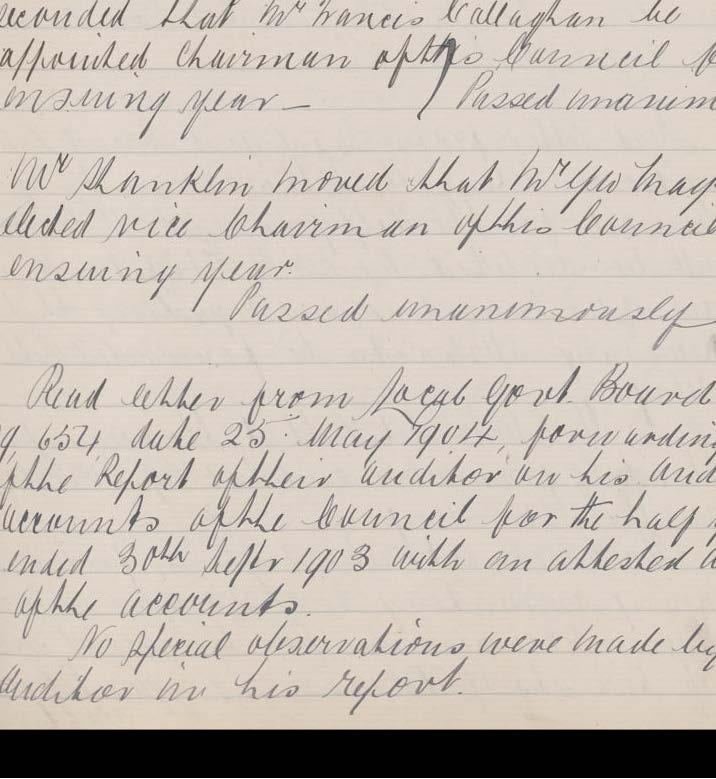 seconded that Mr Francis Callaghan be
appointed Chairman of this Council f
ensuing year— Passed unanim
Mr Shanklin moved that Mr Geo Mag
elected vice Chairman of this Council
ensuing year.
Passed unanimously
Read letter from Local Govt. Board
9,654 date 25. May 1904, forwarding
of the Report of their auditor on his aud
accounts of the Council for the half y
ended 30th Septr 1903 with an attested a
of the accounts.
No special observations were made by
auditor in his report.